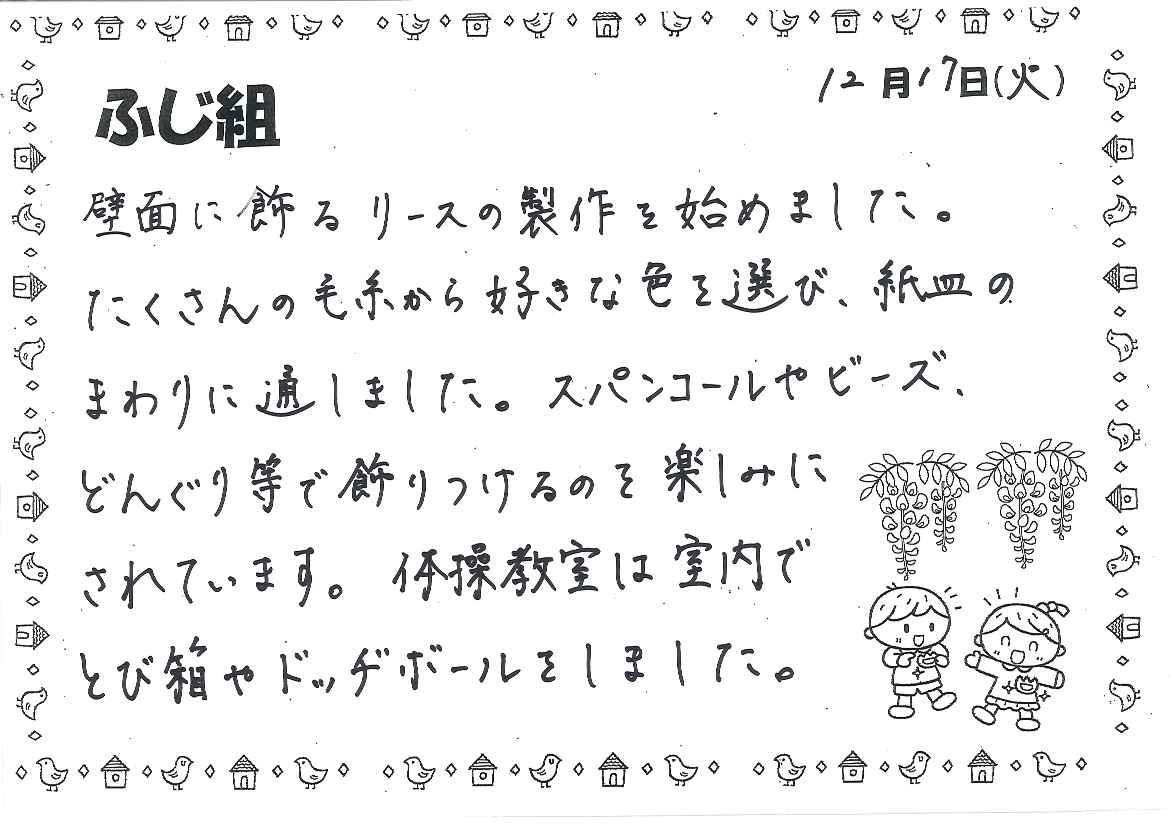 12月17日(火)
ふじ組
壁面に飾るリースの製作を始めました。
たくさんの毛糸から好きな色を選び、紙皿の
まわりに通しました。スパンコールやビーズ、
どんぐり等で飾りつけるのを楽しみに
されています。体操教室は室内で
とび箱やドッヂボールをしました。